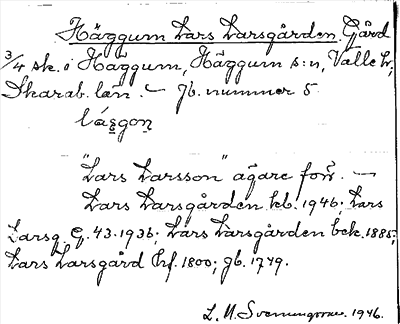 Häggum Lars Larsgården. Gård
3/4 sk. i Häggum, Häggum s:n, Valle hd,
Skarab. län. – Jb. nummer 5
lásgoņ
"Lars Larsson" ägare förr. –
Lars Larsgården kb. 1946; Lars
Larsg. E. 43. 1936; Lars Larsgården bek. 1885;
Lars Larsgård hf. 1800; jb. 1749.
L. M. Svenungsson. 1946.